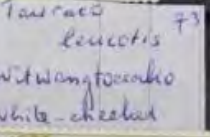 Tauraco 73
leucotis
Witwangtoerako
white-cheeked